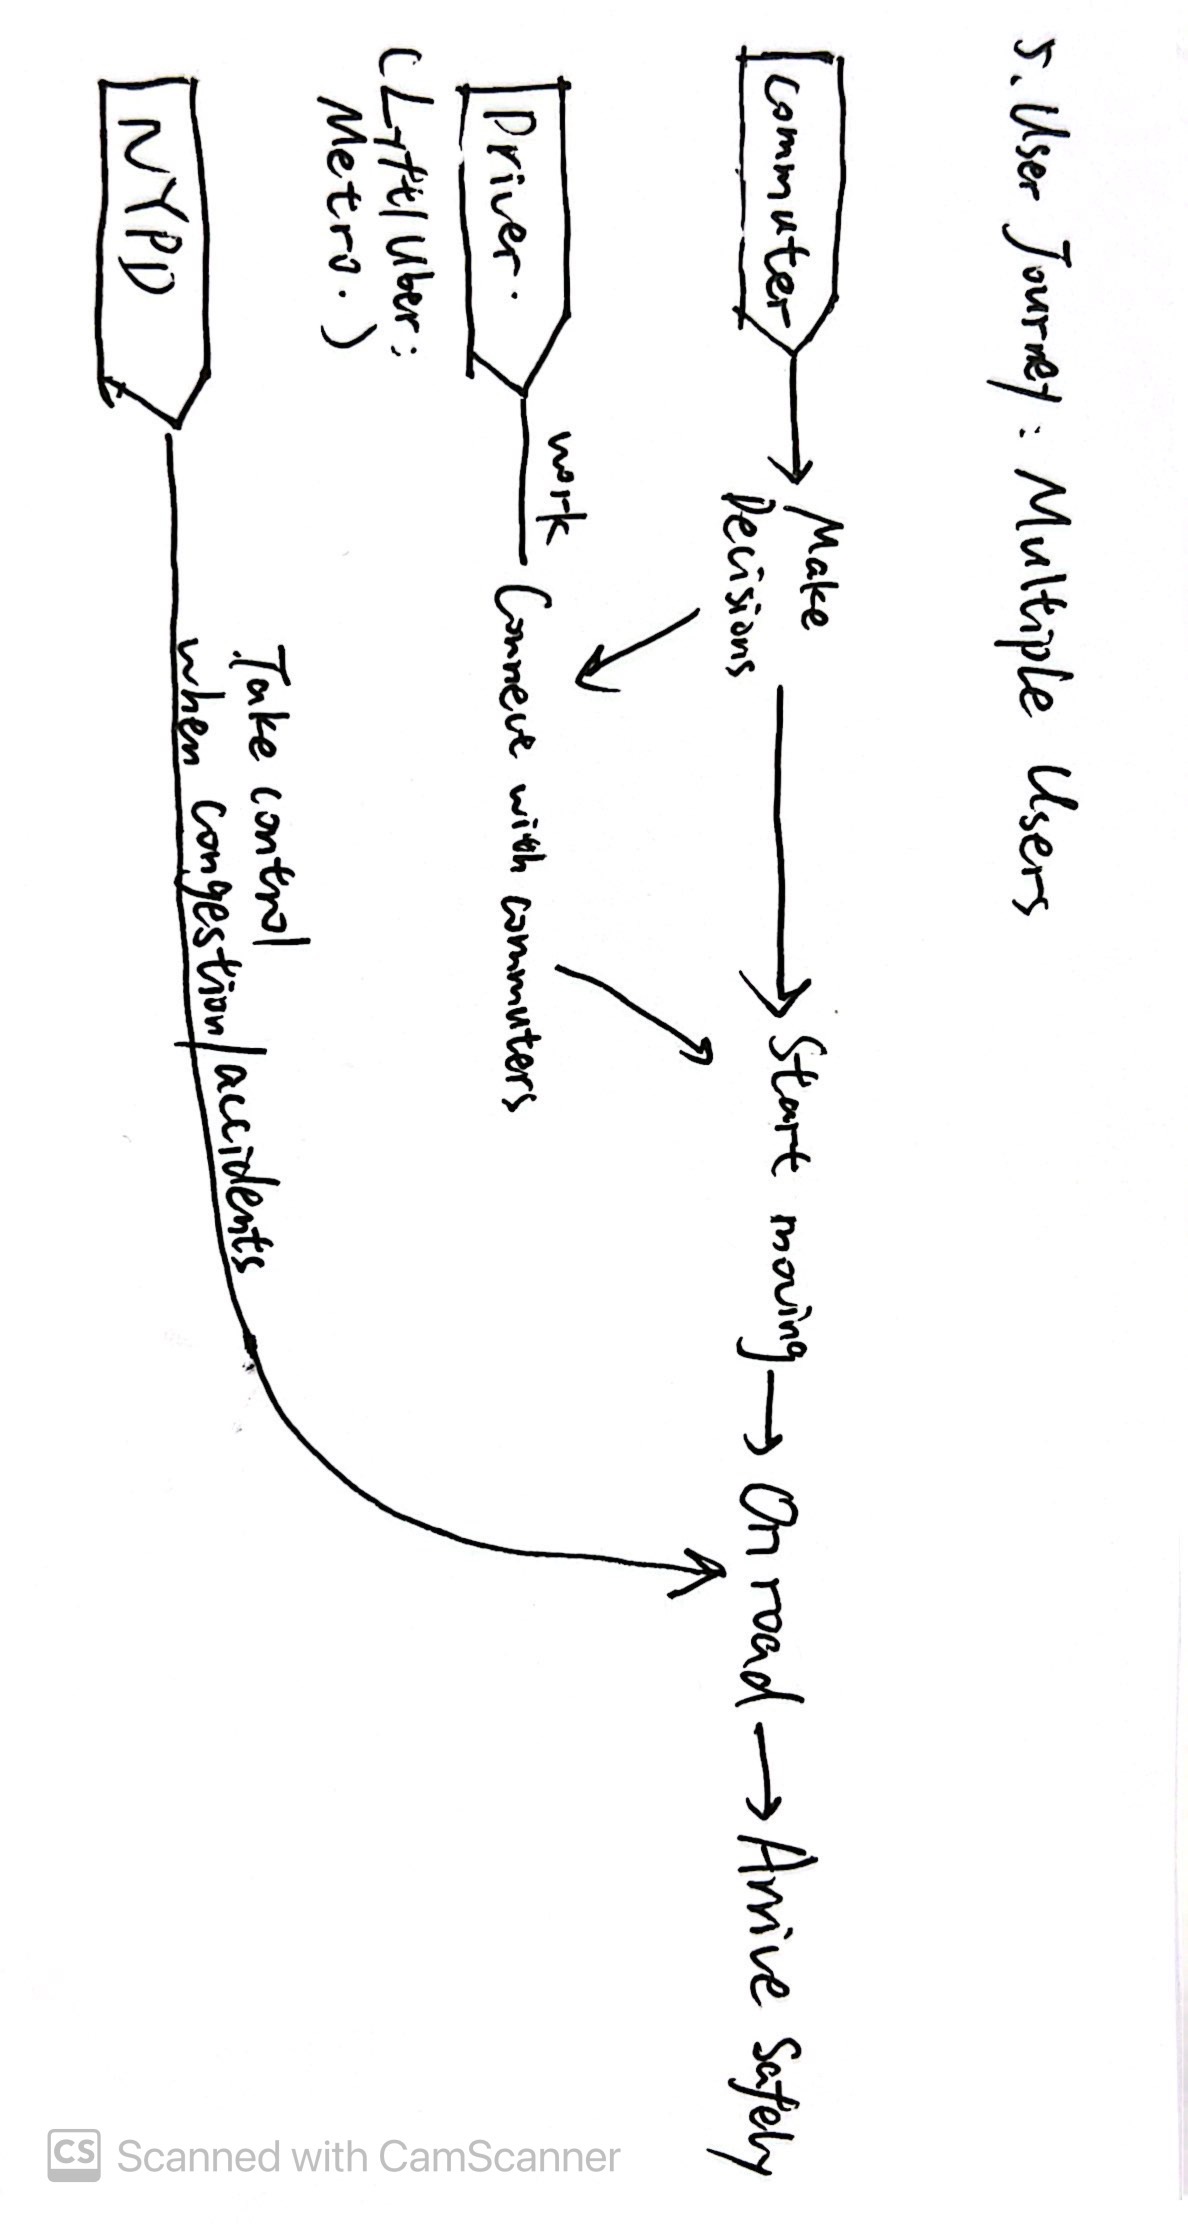 5. User Journey: Multiple Users
commuter
Make
Decisions
Start moving
On road
Arrive Safely
work
Driver.
Connect with commuters
(Lyft/Uber;
Metro.)
Take control
when congestion/accidents
NYPD
CS Scanned with CamScanner